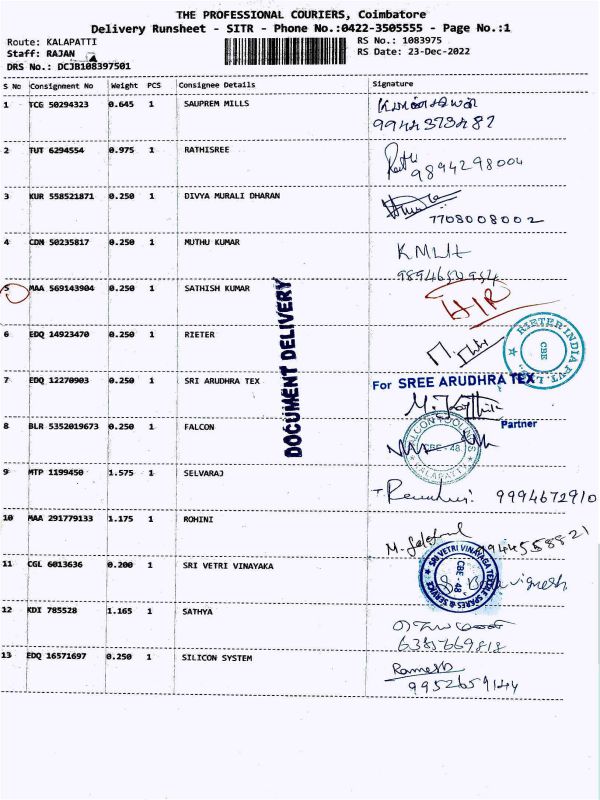 THE PROFESSIONAL COURIERS, Coimbatore
Delivery Runsheet - SITR - Phone No.:0422-3505555 - Page No.:1
Route: KALAPATTI RS No.: 1083975
Staff: RAJAN RS Date: 23-Dec-2022
DRS No.: DCJB108397501
S No Consignment No Weight PCS Consignee Details Signature
1 TCG 50294323 0.645 1 SAUPREM MILLS
9944373482
2 TUT 6294554 0.975 1 RATHISREE
9894298004
3 KUR 558521871 0.250 1 DIVYA MURALI DHARAN
7708008002
4 CDN 50235817 0.250 1 MUTHU KUMAR
5 MAA 569143904 0.250 1 SATHISH KUMAR
DOCUMENT DELIVERY
6 EDQ 14923470 0.250 1 RIETER
RIETER INDIA PVT. LTD. CBE
7 EDQ 12270903 0.250 1 SRI ARUDHRA TEX For SREE ARUDHRA TEX
Partner
8 BLR 5352019673 0.250 1 FALCON
FALCON TOOLINGS CBE-48 KALAPATTI
9 MTP 1199450 1.575 1 SELVARAJ
9994672910
10 MAA 291779133 1.175 1 ROHINI
9944558821
11 CGL 6013636 0.200 1 SRI VETRI VINAYAKA
SRI VETRI VINAYAGA TEXTILE SPARES & SERVICE CBE - 48
12 KDI 785528 1.165 1 SATHYA
6385669818
13 EDQ 16571697 0.250 1 SILICON SYSTEM Ramesh
9952659144